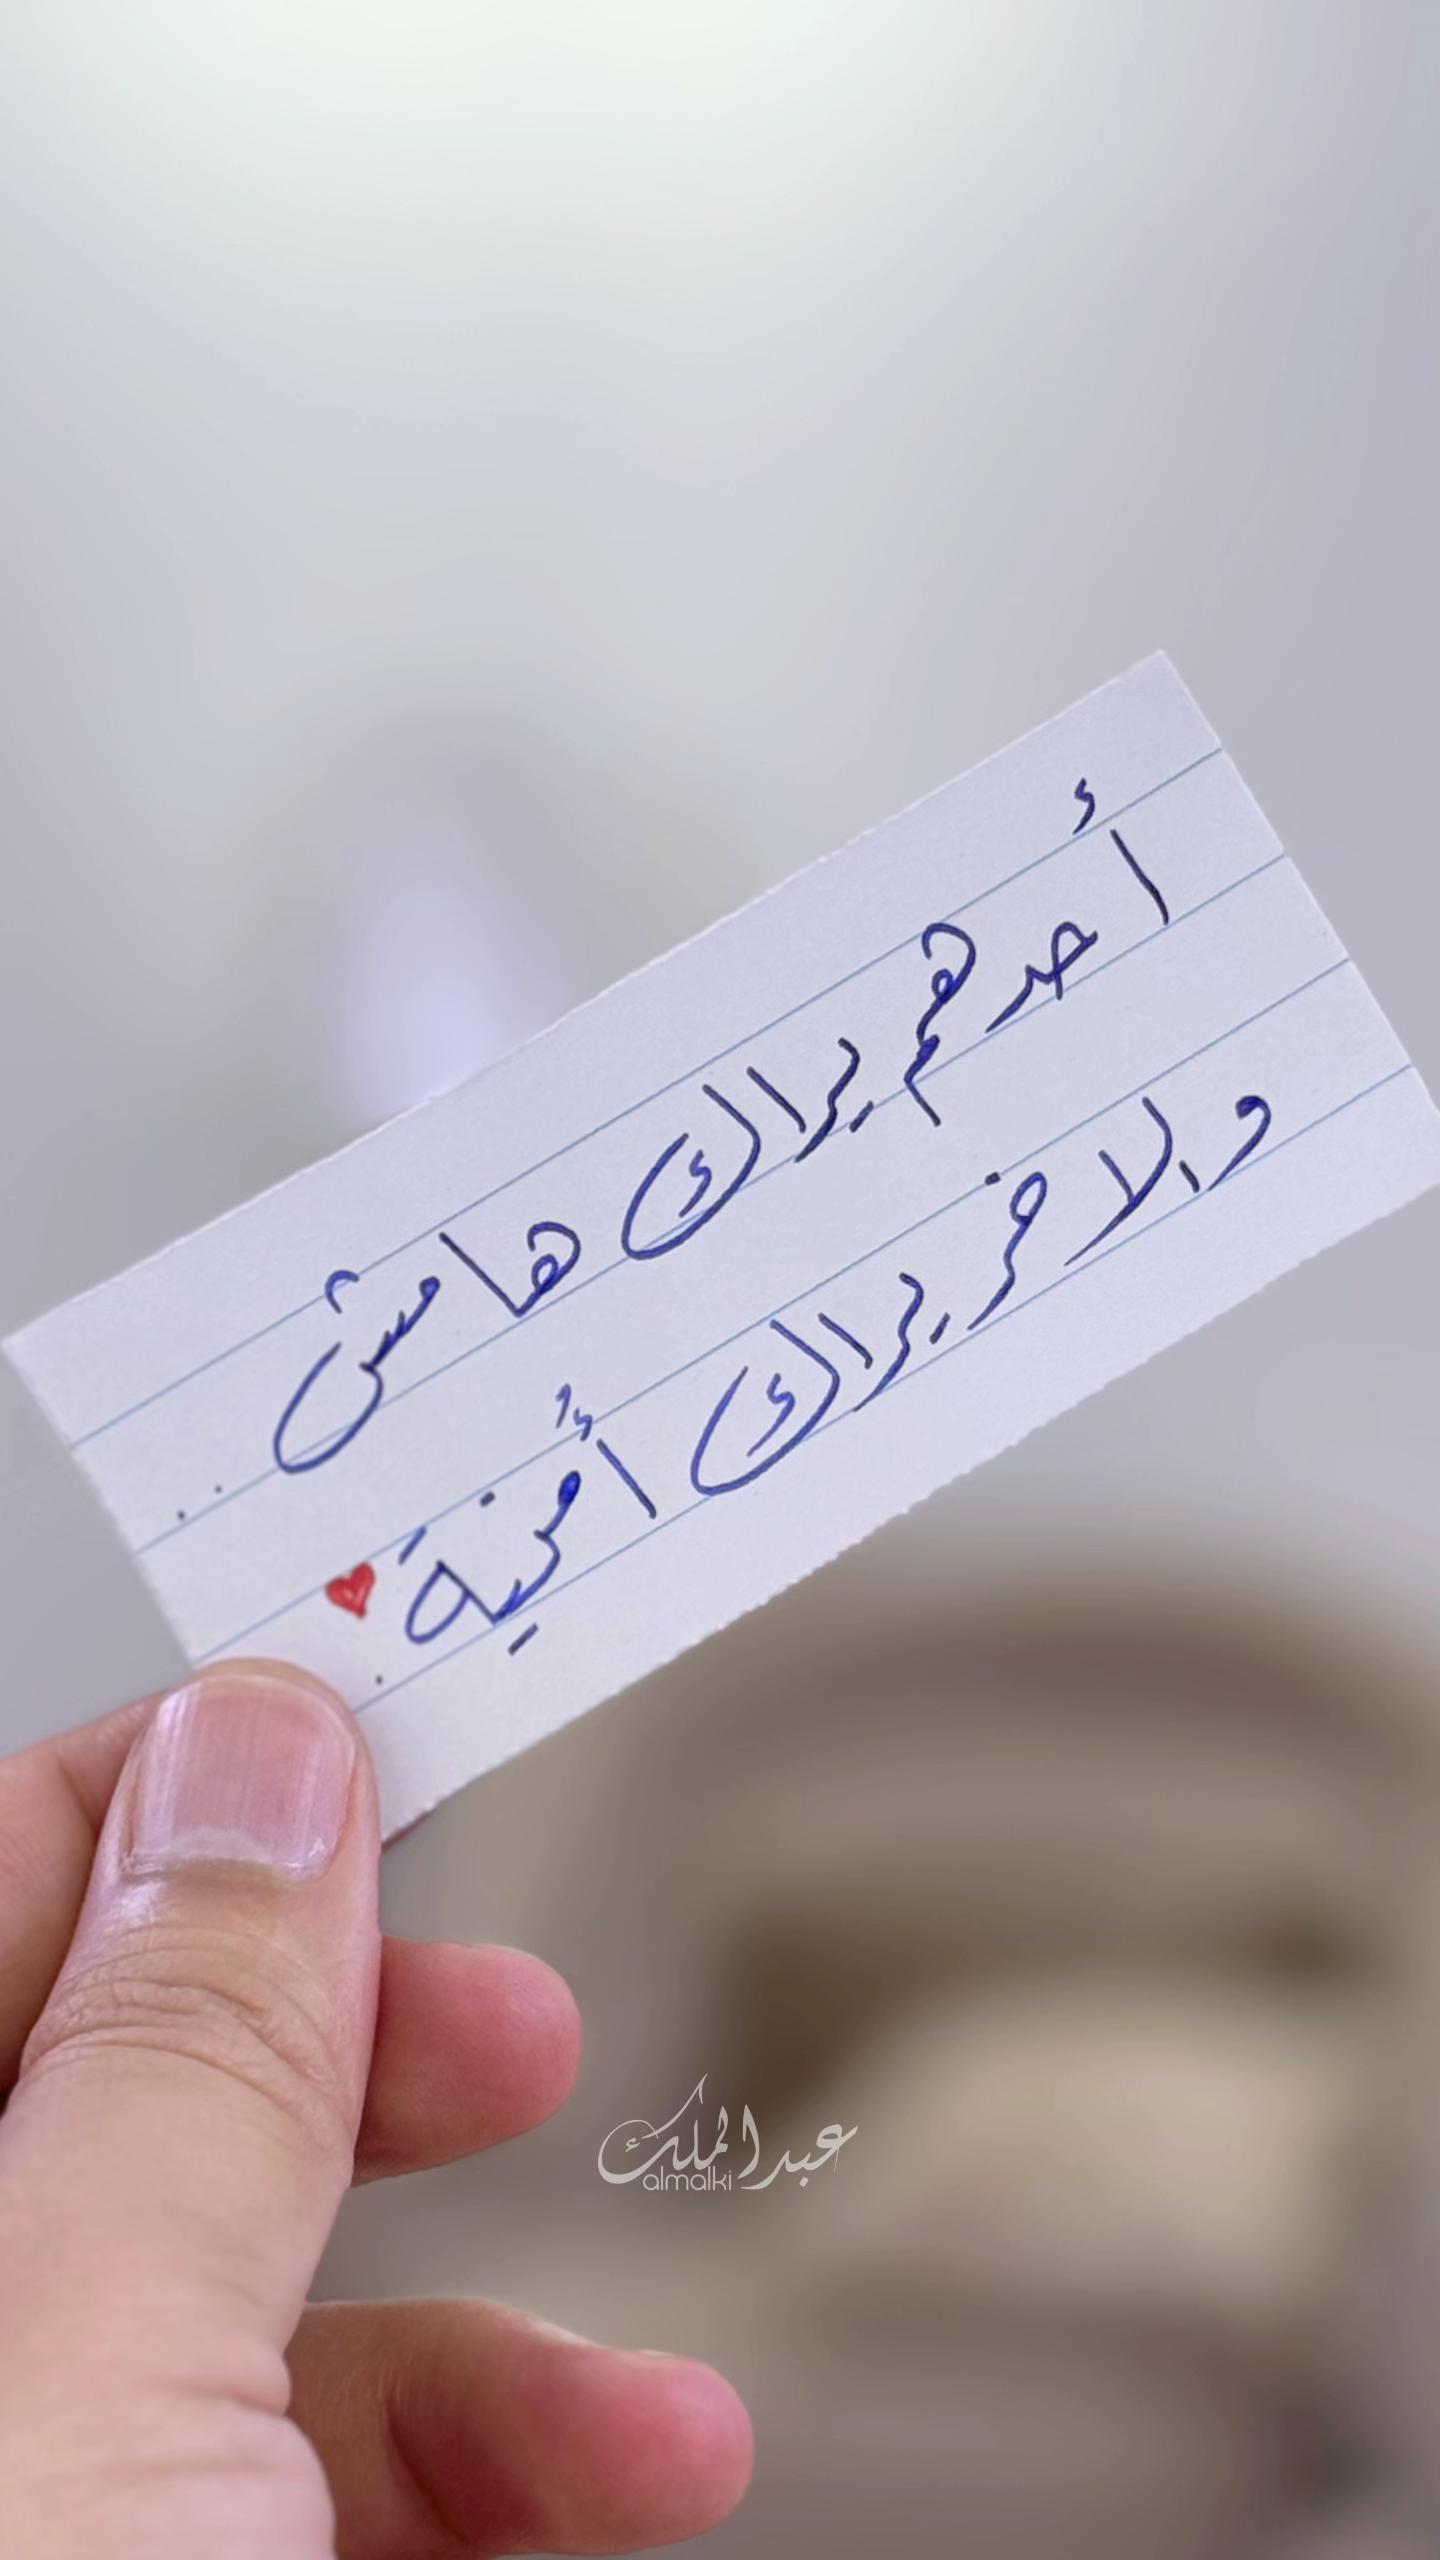 أحدهم يراك هامش ..
والاخر يراك أُمنية ♥ .
عبدالملك
almalki